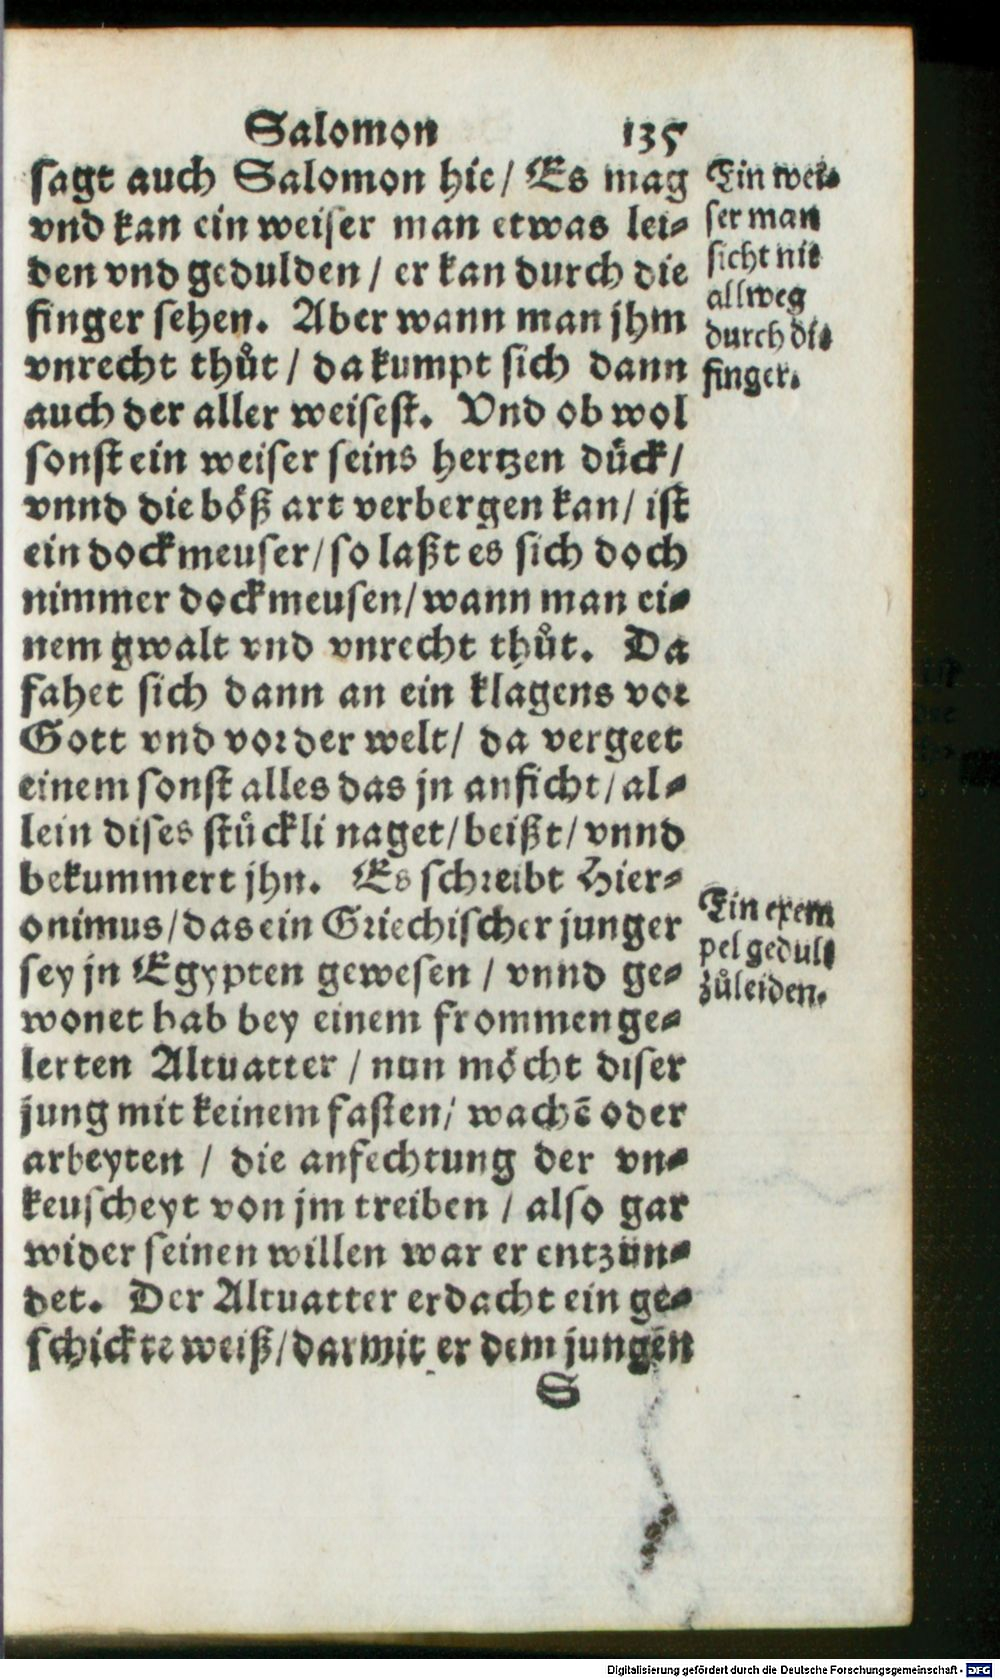 Salomon 135
sagt auch Salomon hie/ Es mag
vnd kan ein weiser man etwas lei-
den vnd gedulden / er kan durch die
finger sehen. Aber wann man jhm
vnrecht thůt / da kumpt sich dann
auch der aller weisest. Vnd ob wol
sonst ein weiser seins hertzen dück/
vnnd die böß art verbergen kan/ ist
ein dockmeuser/so laßt es sich doch
nimmer dockmeusen/wann man ei-
nem gwalt vnd vnrecht thůt. Da
fahet sich dann an ein klagens vor
Gott vnd vor der welt/ da vergeet
einem sonst alles das jn anficht/al-
lein dises stückli naget/beißt/vnnd
bekummert jhn. Es schreibt Hier-
onimus/das ein Griechischer junger
sey jn Egypten gewesen / vnnd ge-
wonet hab bey einem frommen ge-
lerten Altuatter / nun möcht diser
jung mit keinem fasten/ wachē oder
arbeyten / die anfechtung der vn-
keuscheyt von jm treiben / also gar
wider seinen willen war er entzün-
det. Der Altuatter erdacht ein ge-
schickte weiß/darmit er dem jungen
S
Ein wei-
ser man
sicht nit
allweg
durch die
finger.
Ein exem
pel gedult
zůleiden.
Digitalisierung gefördert durch die Deutsche Forschungsgemeinschaft - DFG